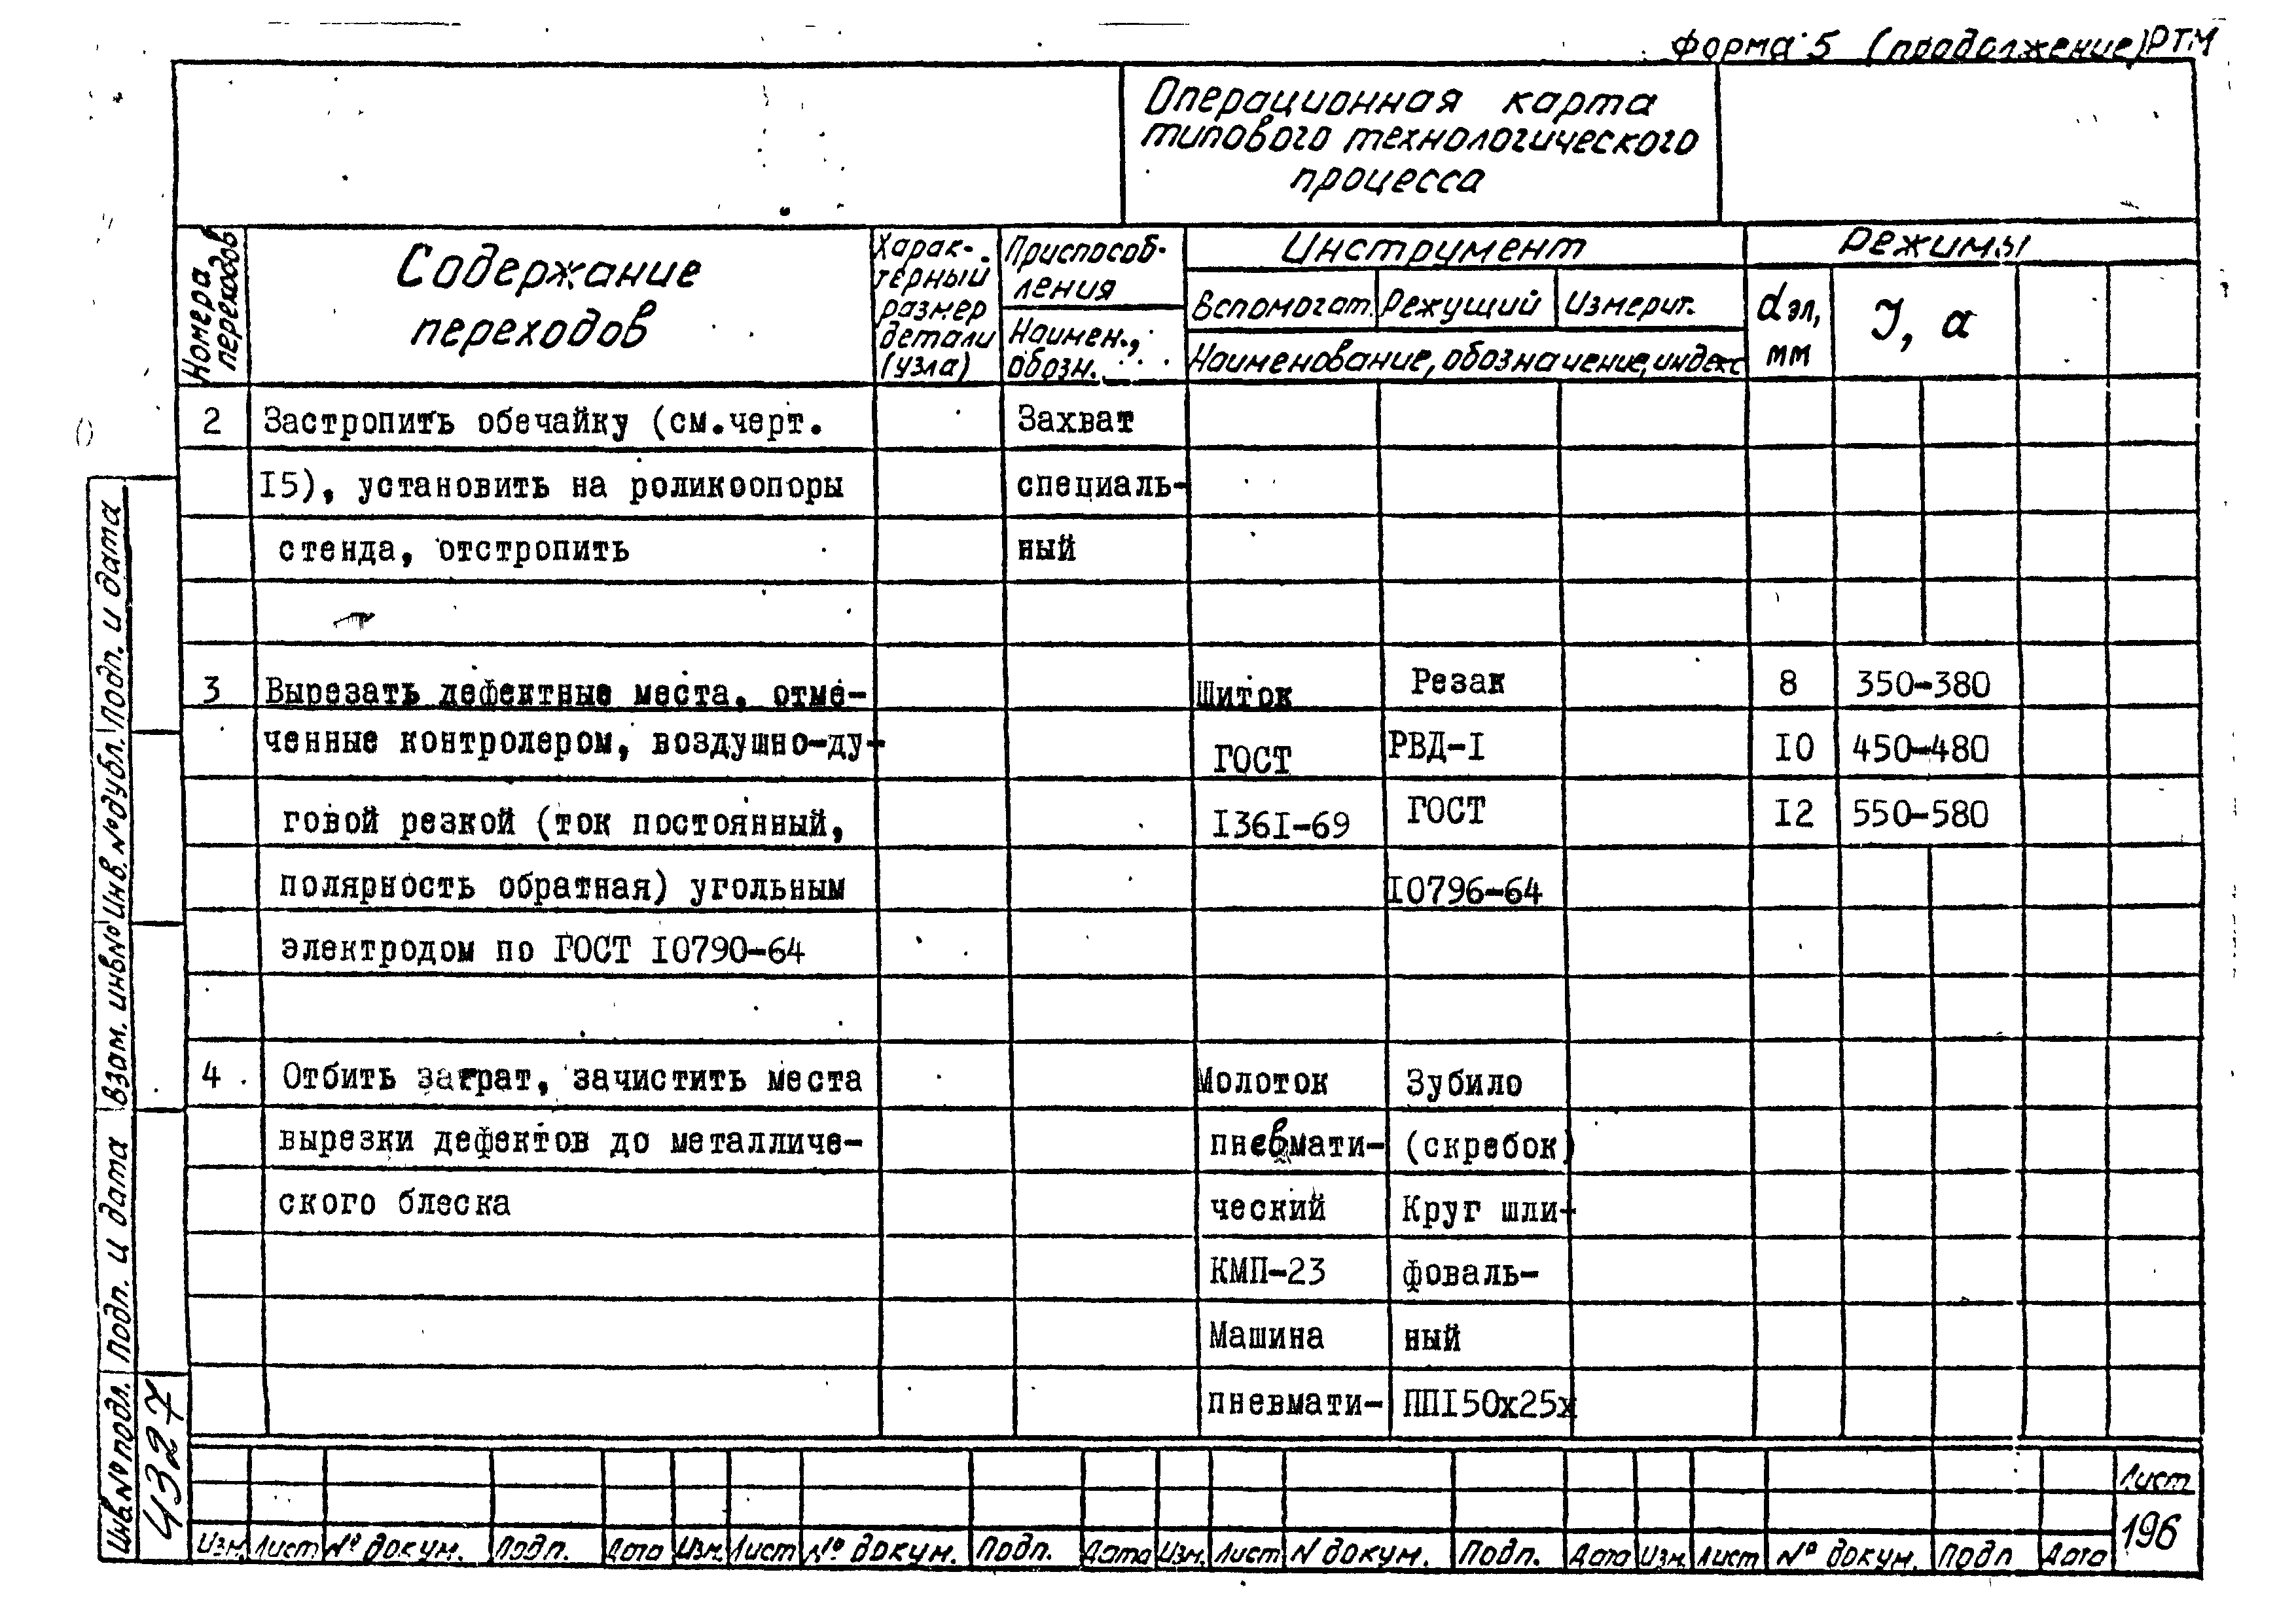 Форма 5 (продолжение) РТМ
Операционная карта
типового технологического
процесса
Номера
переходов
Содержание
переходов
Харак-
терный
размер
детали
(узла)
Приспособ-
ления
Наимен.,
обозн.
Инструмент
Вспомогат. Режущий Измерит.
Наименование, обозначение, индекс
Режимы
dэл,
мм
I, а
2 Застропить обечайку (см.черт. Захват
15), установить на роликоопоры специаль-
стенда, отстропить ный
3 Вырезать дефектные места, отме- Щиток Резак 8 350-380
ченные контролером, воздушно-ду- ГОСТ РВД-1 10 450-480
говой резкой (ток постоянный, 1361-69 ГОСТ 12 550-580
полярность обратная) угольным 10796-64
электродом по ГОСТ 10790-64
4 Отбить заграт, зачистить места Молоток Зубило
вырезки дефектов до металличе- пневмати- (скребок)
ского блеска ческий Круг шли-
КМП-23 фоваль-
Машина ный
пневмати- ПП150х25х
Инв.№ подл. Подп. и дата Взам. инв№ Инв.№ дубл. Подп. и дата
4327
Лист
196
Изм. Лист № докум. Подп. Дата Изм. Лист № докум. Подп. Дата Изм. Лист N докум. Подп. Дата Изм. Лист № докум. Подп Дата